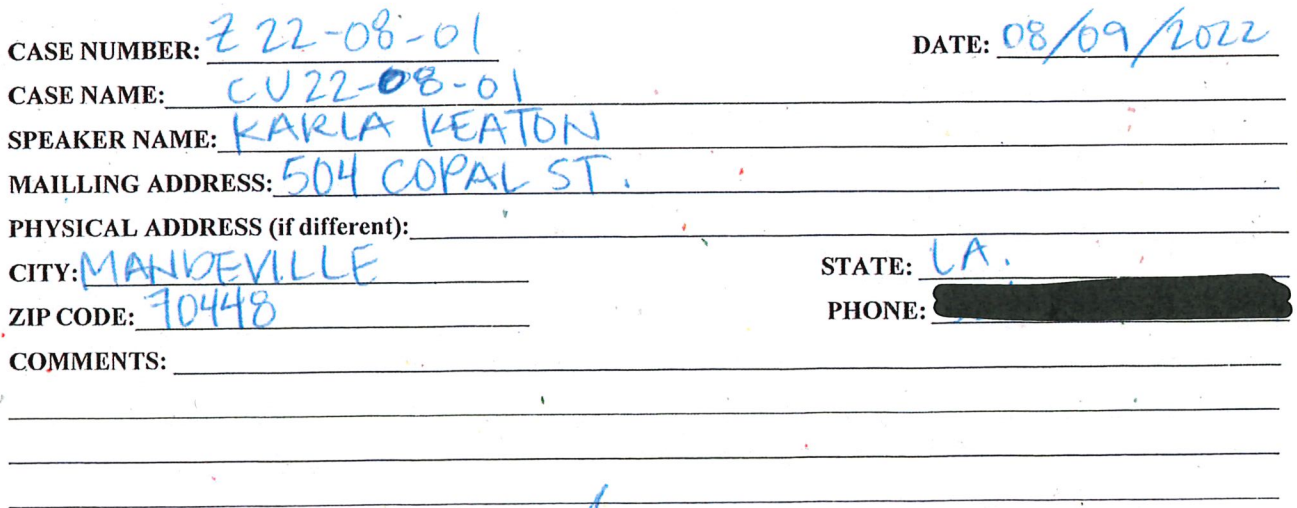 CASE NUMBER: Z 22-08-01 DATE: 08/09/2022
CASE NAME: CU22-08-01
SPEAKER NAME: KARLA KEATON
MAILLING ADDRESS: 504 COPAL ST.
PHYSICAL ADDRESS (if different):
CITY: MANDEVILLE STATE: LA.
ZIP CODE: 70448 PHONE:
COMMENTS: